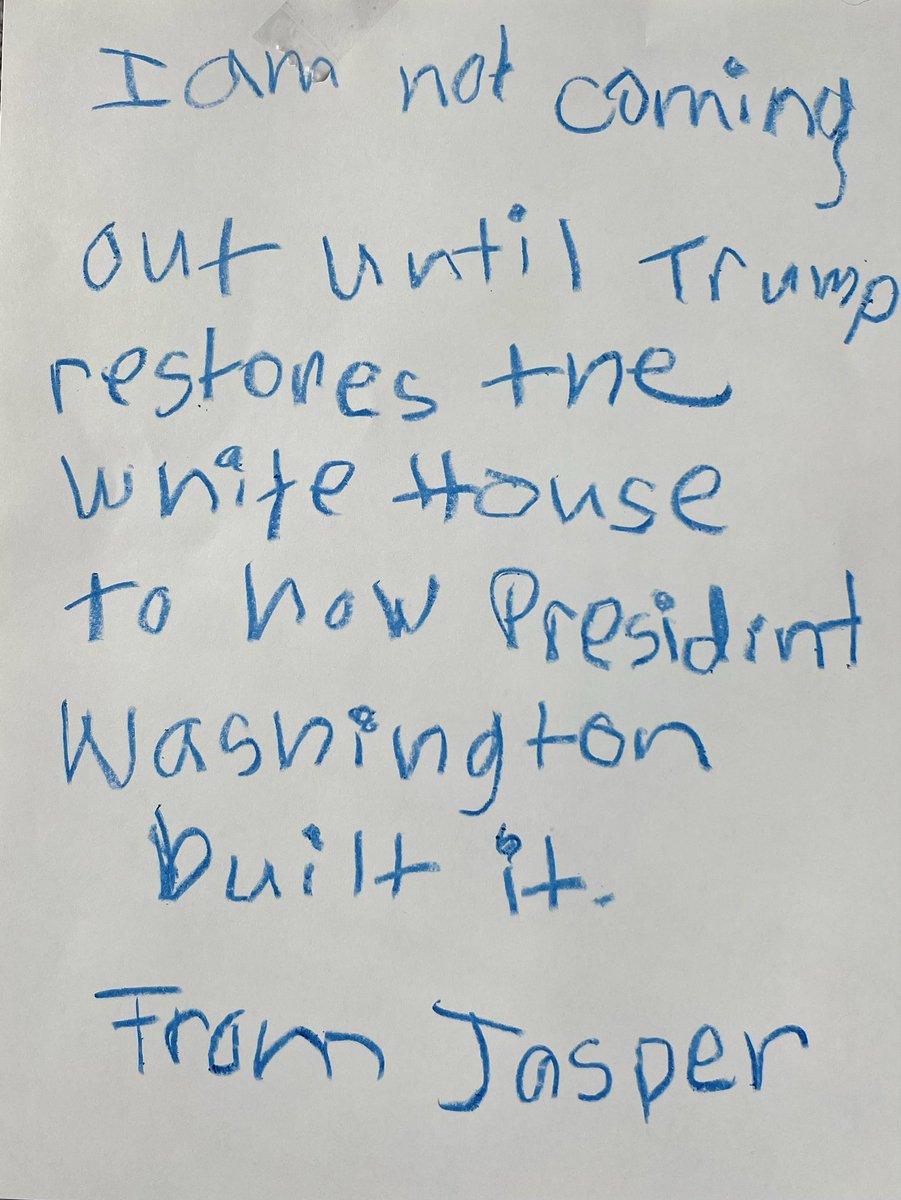 I am not coming
out until Trump
restores the
White House
to how Presidint
Washington
built it.
From Jasper